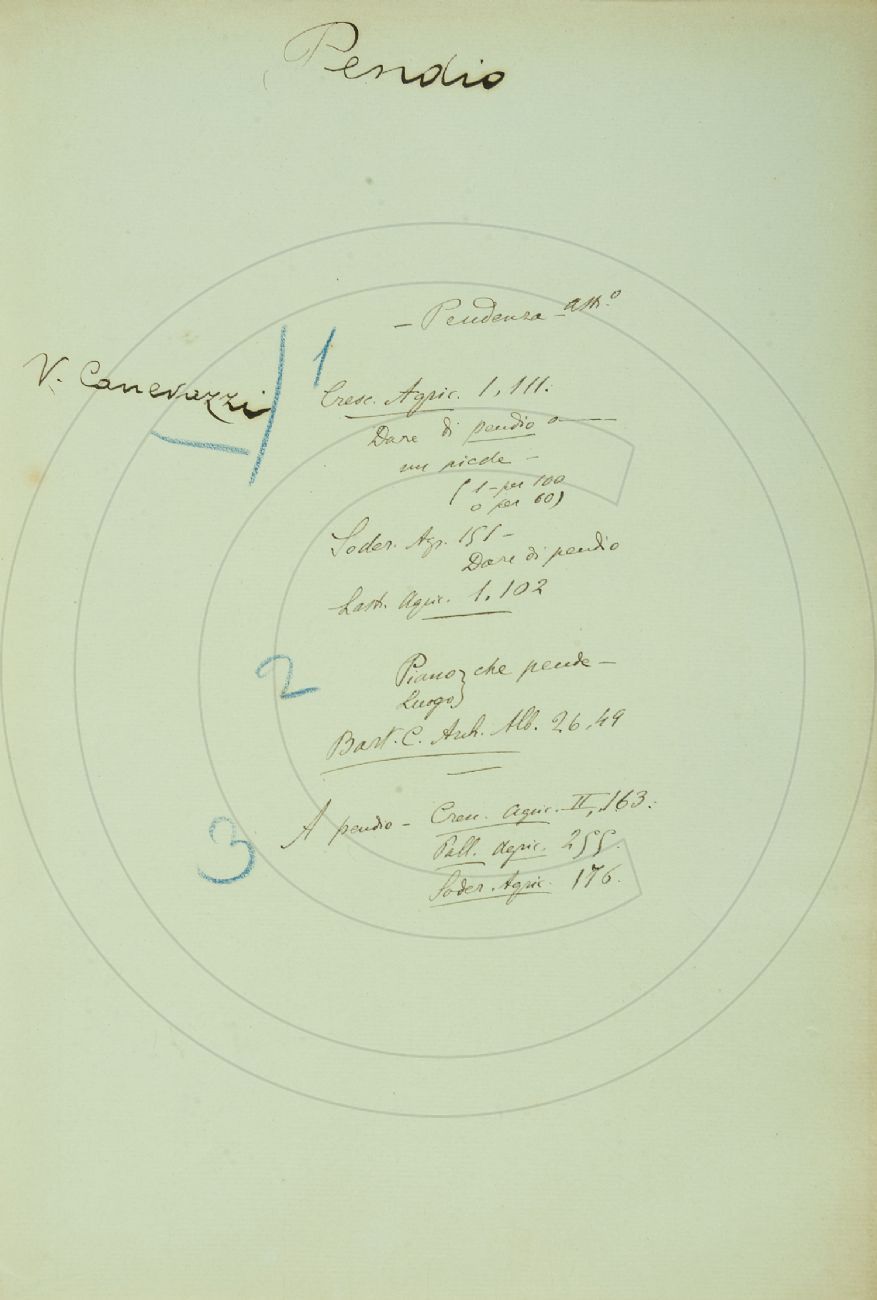 Pendio
— Pendenza — astr.º
V. Canevazzi
1
Cresc. Agric. 1, 111.
Dare di pendio o ——
un piede —
(1 — per 100
o per 60)
Soder. Agr. 151 —
Dare di pendio
Lastr. Agric. 1. 102
2
Piano } che pende —
Luogo }
Bart. C. Arch. Alb. 26.49
3
A pendio — Cresc. Agric. II, 163.
Pall. Agric. 255.
Soder. Agric. 176.